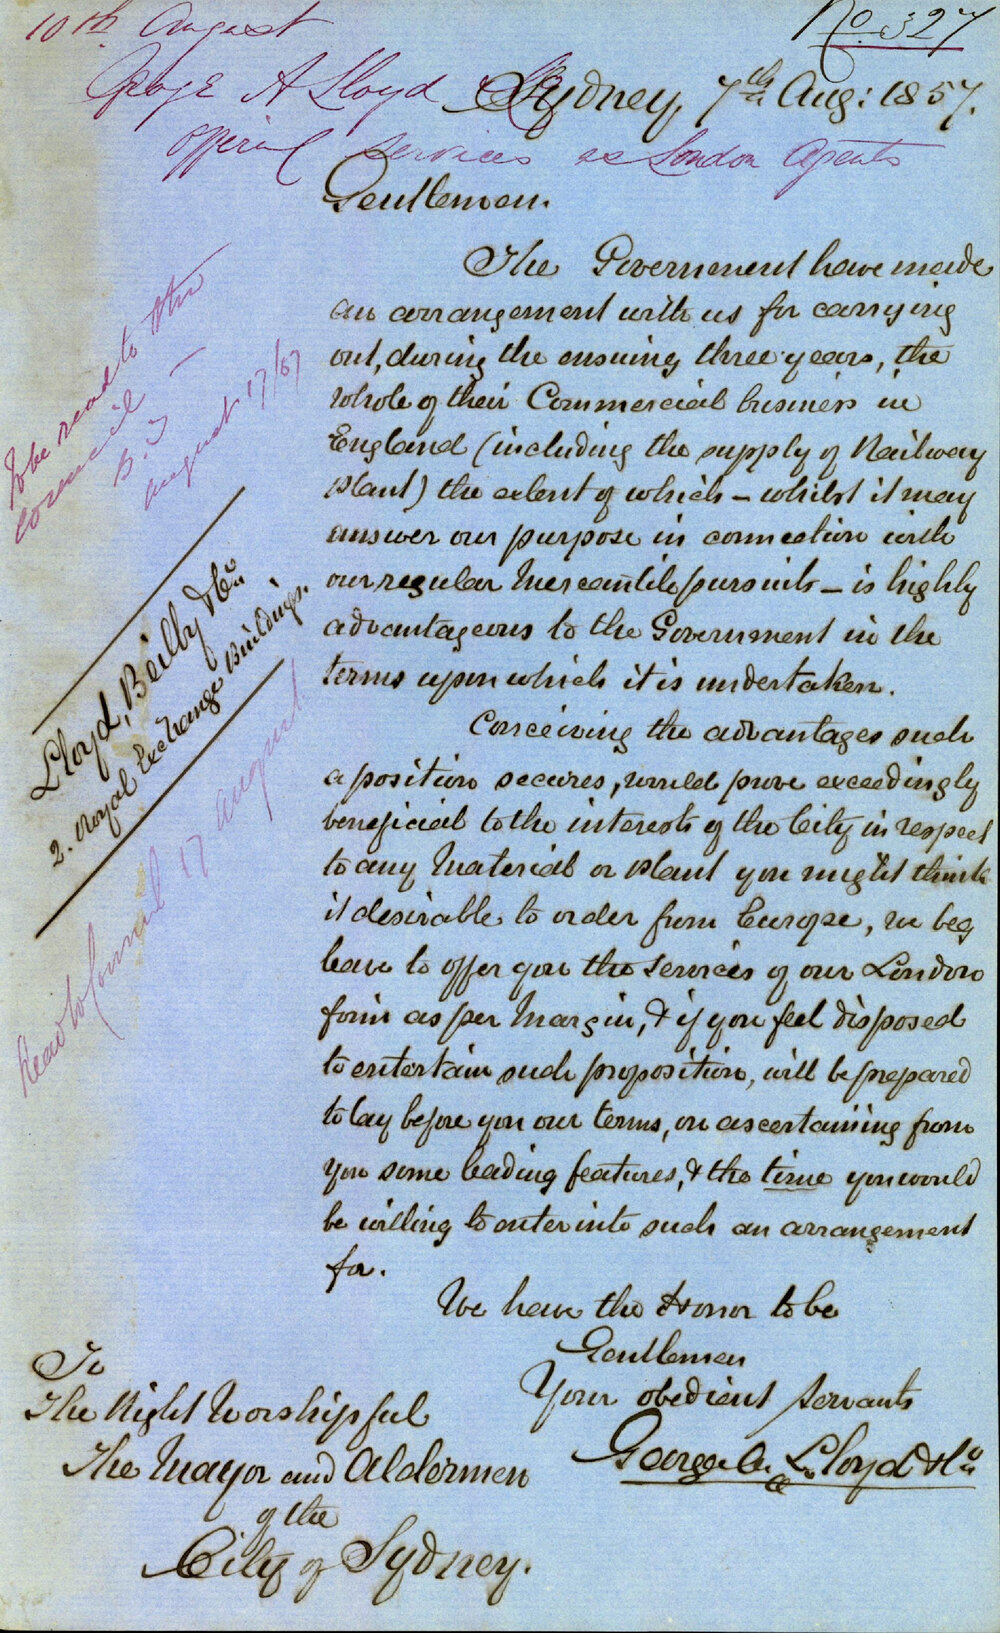 10th August
No. 327
George A Lloyd & Co
Sydney, 7th Aug: 1857.
offering services as London Agents
Gentlemen.
The Government have made
an arrangement with us for carrying
out, during the ensuing three years, the
whole of their Commercial business in
England (including the supply of Railway
plant) the extent of which – whilst it may
answer our purpose in connection with
our regular Mercantile pursuits – is highly
advantageous to the Government in the
terms upon which it is undertaken.
Conceiving the advantages such
a position secures, would prove exceedingly
beneficial to the interests of the City in respect
to any Material or plant you might think
it desirable to order from Europe, we beg
leave to offer you the services of our London
firm as per Margin, & if you feel disposed
to entertain such proposition, will be prepared
to lay before you our terms, on ascertaining from
you some leading features, & the time you would
be willing to enter into such an arrangement
for.
We have the Honor to be
Gentlemen
Your obedient servants
George A. Lloyd & Co
To be read to the
council –
August 17/57
Lloyd, Beilby & Co
2. Royal Exchange Buildings.
Read to Council 17 August
To
The Right Worshipful
The Mayor and Aldermen
of the
City of Sydney.